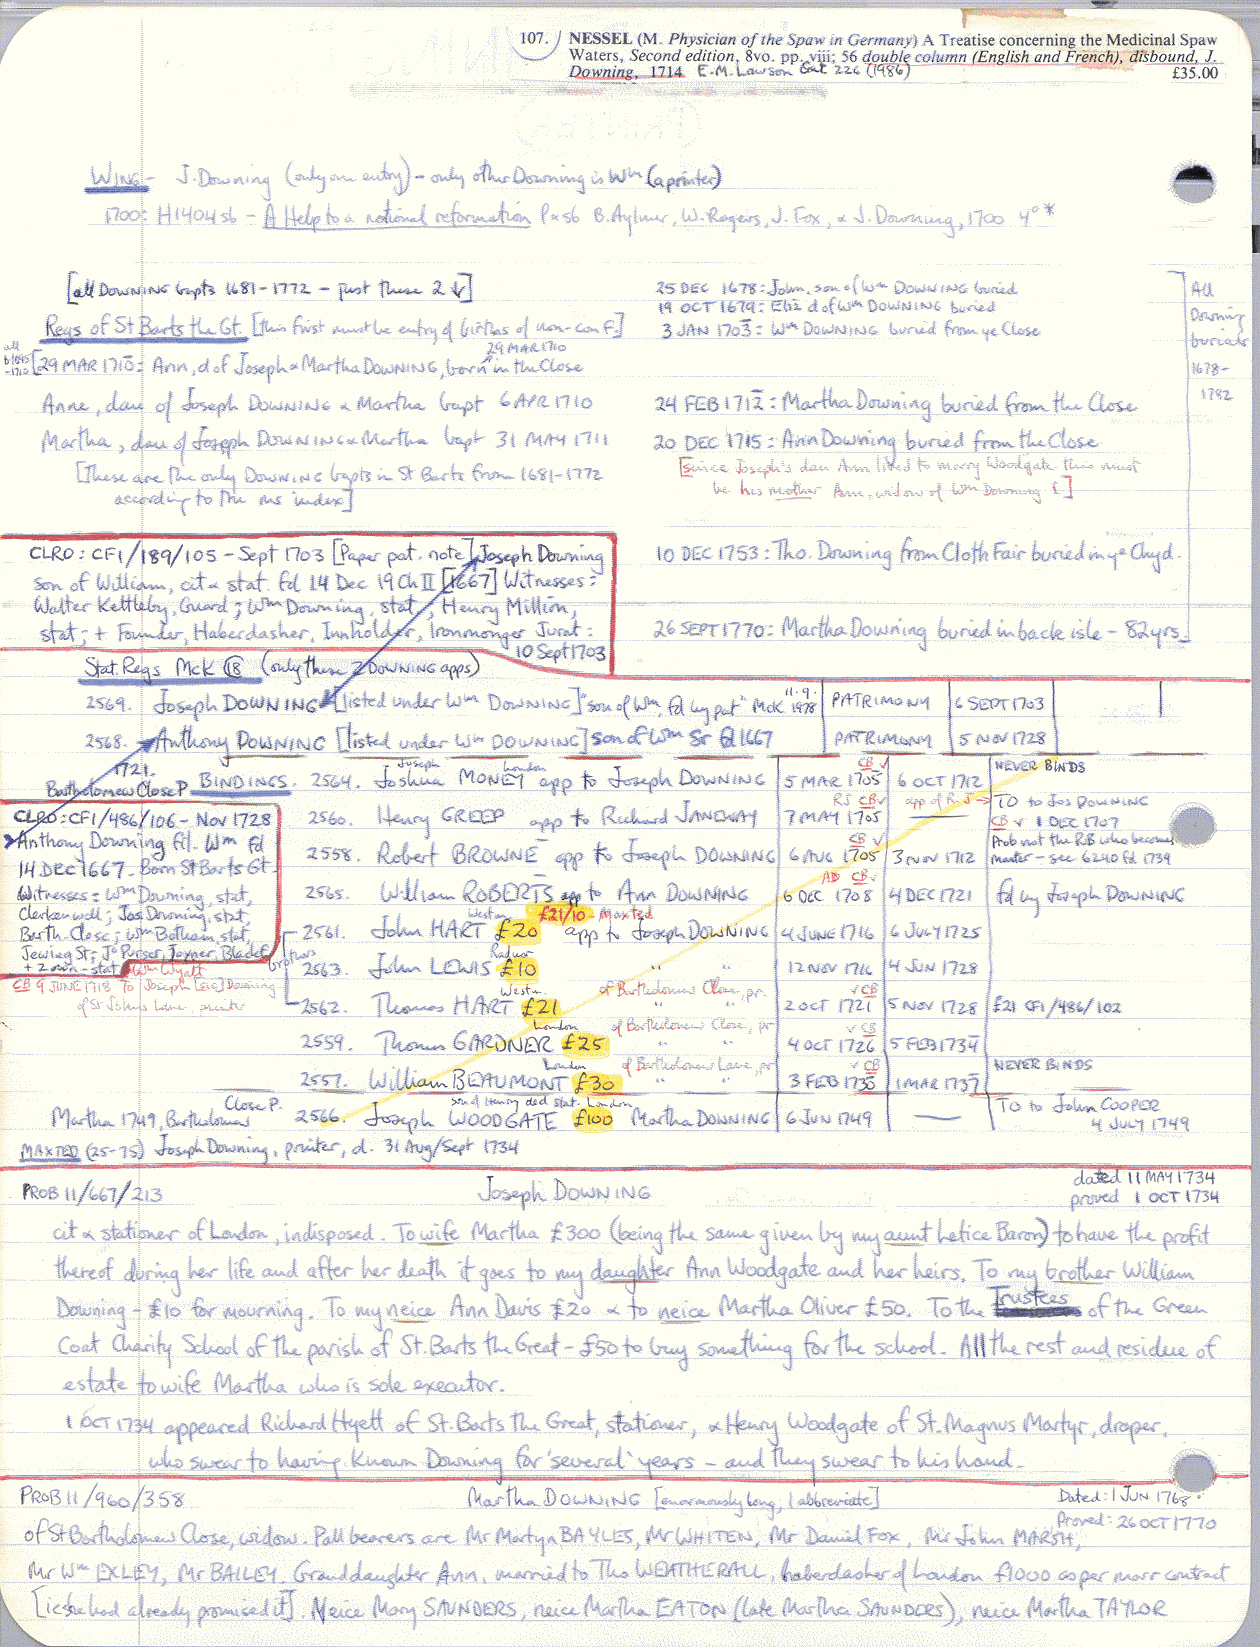 107. NESSEL (M. Physician of the Spaw in Germany) A Treatise concerning the Medicinal Spaw
Waters, Second edition, 8vo. pp. viii; 56 double column (English and French), disbound, J.
Downing, 1714 E.M. Lawson Cat 226 (1986) £35.00
WING - J. Downing (only one entry) - only other Downing is Wm (a printer)
1700: H1404 sb - A Help to a national reformation B. Aylmer, W. Rogers, J. Fox, & J. Downing, 1700 4° *
[all DOWNING bapts 1681-1772 - just these 2 ↓]
Regs of St Barts the Gt. [this first must be entry of births of non-conf.]
all
-1710
29 MAR 1710
[29 MAR 1710: Ann, d of Joseph & Martha DOWNING, born in the Close
Anne, dau of Joseph DOWNING & Martha bapt 6 APR 1710
Martha, dau of Joseph DOWNING & Martha bapt 31 MAY 1711
[These are the only DOWNING bapts in St Barts from 1681-1772
according to the ms index]
25 DEC 1678: John, son of Wm DOWNING buried
19 OCT 1679: Eliz d of Wm DOWNING buried
3 JAN 1703: Wm DOWNING buried from ye Close
24 FEB 1712: Martha Downing buried from the Close
20 DEC 1715: Ann Downing buried from the Close
[since Joseph's dau Ann lived to marry Woodgate this must
be his mother Ann, widow of Wm Downing I]
10 DEC 1753: Tho. Downing from Cloth Fair buried in ye Chyd.
26 SEPT 1770: Martha Downing buried in back isle - 82 yrs
All
Downing
burials
1678-
1782
CLRO: CF1/189/105 - Sept 1703 [Paper pat. note] Joseph Downing
son of William, cit & stat. fd 14 Dec 19 Ch II [1667] Witnesses:
Walter Kettleby, Guard; Wm Downing, stat, Henry Million,
stat; + Founder, Haberdasher, Innholder, Ironmonger Jurat:
10 Sept 1703
Stat. Regs McK 18 (only these 2 DOWNING apps)
2569. Joseph DOWNING [listed under Wm DOWNING] "son of Wm, fd by pat" McK 1978 PATRIMONY 6 SEPT 1703
2568. Anthony DOWNING [listed under Wm DOWNING] son of Wm Sr fd 1667 PATRIMONY 5 NOV 1728
1721.
Bartholomew Close P
BINDINGS. 2564. Joshua MONEY app to Joseph DOWNING 5 MAR 1705 6 OCT 1712 NEVER BINDS
Joseph London CB ✓
2560. Henry GREEP app to Richard JANEWAY 7 MAY 1705 —— TO to Jos DOWNING
RJ CB ✓ app of R.J → CB ✓ 1 DEC 1707
2558. Robert BROWNE app to Joseph DOWNING 6 AUG 1705 3 NOV 1712 Prob not the RB who becomes
CB ✓ master - see 6240 fd 1739
2565. William ROBERTS app to Ann DOWNING 6 DEC 1708 4 DEC 1721 fd by Joseph DOWNING
AD CB ✓
Westm. £21/10 - Maxted
2561. John HART £20 app to Joseph DOWNING 4 JUNE 1716 6 JULY 1725
Radnor
2563. John LEWIS £10 " " 12 NOV 1716 4 JUN 1728
brothers
Westm. of Bartholomew Close, pr. ✓ CB
2562. Thomas HART £21 " " 2 OCT 1721 5 NOV 1728 £21 CF1/486/102
London of Bartholomew Close, pr ✓ CB
2559. Thomas GARDNER £25 " " 4 OCT 1726 5 FEB 1734
London of Bartholomew Lane, pr ✓ CB
2557. William BEAUMONT £30 " " 3 FEB 1730 1 MAR 1737 NEVER BINDS
son of Henry ded stat. London
Martha 1749, Bartholomew Close P. 2566. Joseph WOODGATE £100 Martha DOWNING 6 JUN 1749 —— TO to John COOPER
4 JULY 1749
CLRO: CF1/486/106 - Nov 1728
Anthony Downing fil. Wm fd
14 DEC 1667. Born St Barts Gt.
Witnesses: Wm Downing, stat,
Clerkenwell; Jos Downing, stat,
Barth-Close; Wm Botham, stat,
Jewing St; Jo Purser, Joyner, Blackf
+ 2 non-stat Wm Wyatt
CB 9 JUNE 1718 To Joseph [sic] Downing
of St Johns Lane, printer
MAXTED (25-75) Joseph Downing, printer, d. 31 Aug/Sept 1734
PROB 11/667/213 Joseph DOWNING dated 11 MAY 1734
proved 1 OCT 1734
cit & stationer of London, indisposed. To wife Martha £300 (being the same given by my aunt Letice Baron) to have the profit
thereof during her life and after her death it goes to my daughter Ann Woodgate and her heirs. To my brother William
Downing - £10 for mourning. To my neice Ann Davis £20 & to neice Martha Oliver £50. To the Trustees of the Green
Coat Charity School of the parish of St. Barts the Great - £50 to buy something for the school. All the rest and residue of
estate to wife Martha who is sole executor.
1 OCT 1734 appeared Richard Hyett of St. Barts the Great, stationer, & Henry Woodgate of St. Magnus Martyr, draper,
who swear to having known Downing for 'several' years - and they swear to his hand.
PROB 11/960/358 Martha DOWNING [enormously long, I abbreviate] Dated: 1 JUN 1768.
Proved: 26 OCT 1770
of St Bartholomew Close, widow. Pall bearers are Mr Martyn BAYLES, Mr WHITEN, Mr Daniel FOX, Mr John MARSH,
Mr Wm EXLEY, Mr BAILEY. Granddaughter Ann, married to Tho WEATHERALL, haberdasher of London £1000 as per marr contract
[ie she had already promised it]. Neice Mary SAUNDERS, neice Martha EATON (late Martha SAUNDERS), neice Martha TAYLOR